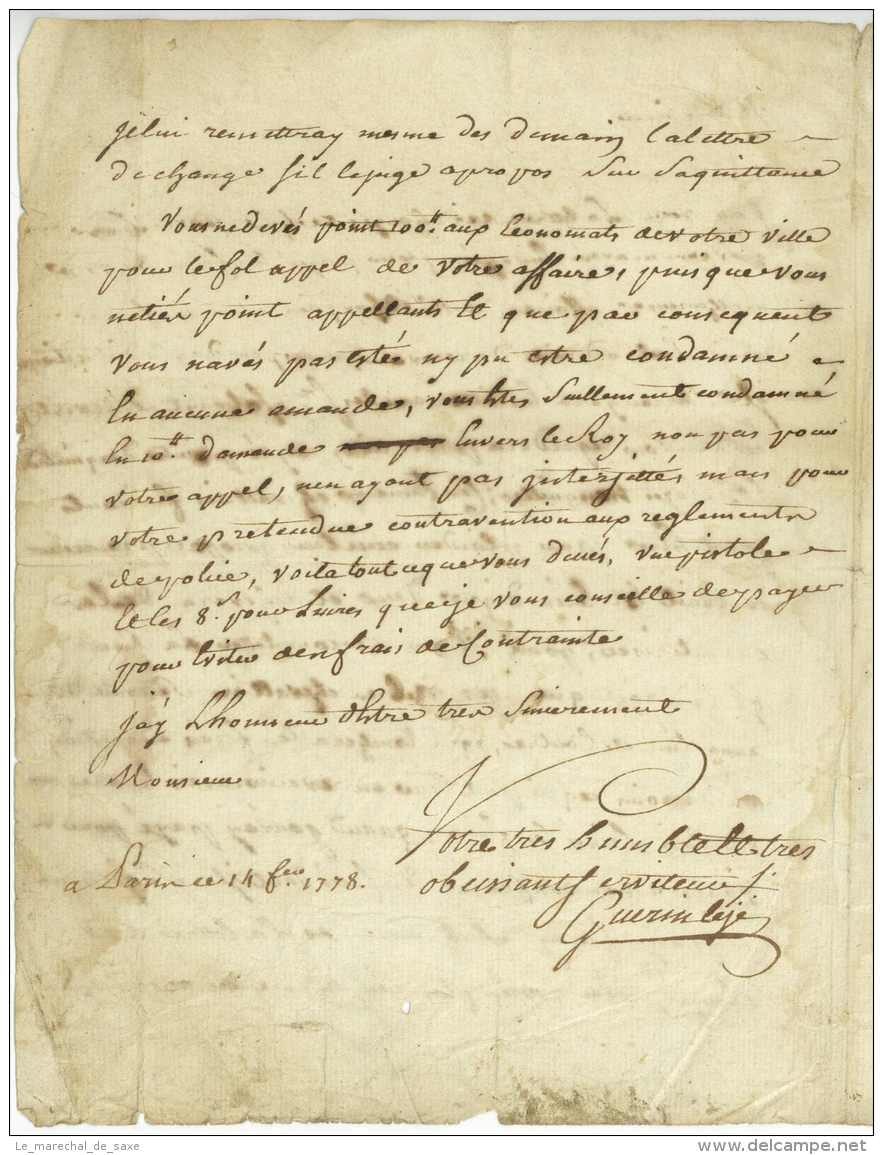 Jelui remettray mesme des demain lalettre
dechange sil lejuge apropos sur saquittance
Vousnedevés point 100.ᵗᵗ aux Economats devotre ville
pour lefol appel de votre affaire, puisque vous
netiés point appellants Et que par consequent
vous navés pas estée ny pu estre condamné
En aucune amande, vous Estes Seullement condamné
En 10.ᵗᵗ damende Envers le Roy non pas pour
votre appel, nen ayant pas jnterjettés mais pour
votre pretendue contravention aux reglements
depolice, voila tout ceque vous devés, une pistole
Et les 8.ˢ pour Livres queje vous conseille depayer
pour Eviter desfrais de Contrainte
J'ay Lhonneur dEstre tres Sincerement
Monsieur
Votre tres humble Et tres
obeissant Serviteur
Guerin
a Paris ce 14 fev. 1778.
Le_marechal_de_saxe
www.delcampe.net